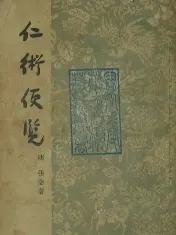 仁術便覽
明 張潔著